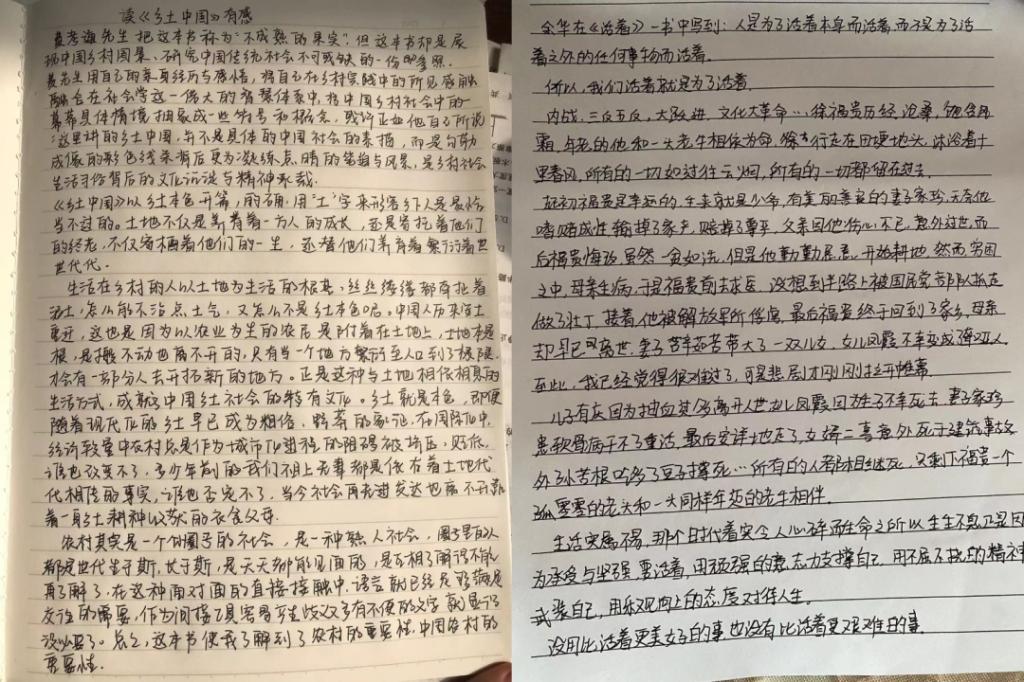 读《乡土中国》有感
费孝通先生把这本书称为“不成熟的果实”,但这本书却是展
现中国乡村图景、研究中国传统社会不可或缺的一份参照。
费先生用自己的亲身经历与感悟,将自己在乡村实践中的所见感触
融合在社会学这一伟大的智慧体系中,将中国乡村社会中的一
幕幕具体情境抽象成一些符号和概念,或许正如他自己所说
“这里讲的乡土中国,并不是具体的中国社会的素描,而是勾勒
成像的形色线条背后更为凝练点睛的笔墨与风景,是乡村社会
生活习俗背后的文化沉淀与精神承载.
《乡土中国》以乡土本色开篇,的确,用“土”字来形容乡下人是最恰
当不过的。土地不仅是养育着一方人的成长,还是寄托着他们
的终老,不仅容纳着他们的一生,还替他们养育着繁衍着世
世代代.
生活在乡村的人以土地为生活的根基,丝丝缕缕都有托着
泥土,怎么能不沾点土气,又怎么不是乡土本色呢。中国人历来安土
重迁,这也是因为以农业为生的农民是附着在土地上,土地本是
根,是搬不动也离不开的,只有当一个地方繁衍至人口到了极限
才会有一部分人去开拓新的地方。正是这种与土地相依相息的
生活方式,成就了中国乡土社会的特有文化。乡土就是本色,即便
随着现代化的乡土早已成为粗俗、野莽的象征,在国际化中,
经济较量中农村总是作为城市化进程的阻碍被挤压,贬低,
谁也改变不了,多少年前的我们祖上无辈都是依存着土地代
代相传的事实,谁也否定不了,当今社会再走进发达也离不开靠
着一身乡土耕种以获的衣食父母.
农村其实是一个小圈子的社会,是一种熟人社会,圈子里的人
都是世代生于斯,长于斯,是天天都能见面的,是互相了解得不能
再了解了,在这种面对面的直接接触中,语言就已经足够满足
交往的需要,作为间接工具容易产生歧义多有不便的文字就显得
没必要了。总之,这本书使我了解到了农村的重要性,中国农村的
重要性.
余华在《活着》一书中写到:人是为了活着本身而活着,而不是为了活
着之外的任何事物而活着.
所以,我们活着就是为了活着.
内战,三反五反,大跃进,文化大革命…,徐福贵历经沧桑,饱含风
霜,年老的他和一头老牛相依为命,缓缓行走在田埂地头,沐浴着十
里春风,所有的一切如过往云烟,所有的一切都留在过去.
起初福贵是幸运的,生来就是少爷,有美丽善良的妻子家珍,无奈他
嗜赌成性输掉了家产,赔掉了尊严,父亲因他伤心不已,意外过世,而
后福贵悔改,虽然一贫如洗,但是他勤勤恳恳,开始耕地,然而穷困
之中,母亲生病,于是福贵前去求医,没想到半路上被国民党部队抓走
做了壮丁,接着他被解放军所俘虏,最后福贵终于回到了家乡,母亲
却早已离世.妻子苦苦茹苦带大了一双儿女,女儿凤霞不幸变成聋哑人,
至此,我已经觉得很难过了,可是悲剧才刚刚拉开帷幕.
儿子有庆因为抽血过多离开人世,女儿凤霞因为生子不幸死去,妻子家珍
患软骨病干不了重活,最后安详地走了,女婿二喜意外死于建筑事故
外孙苦根吃多了豆子撑死…所有的人都相继死,只剩下福贵一个
孤零零的老头和一头同样年迈的老牛相伴.
生活实属不易,那个时代着实令人心碎而生命之所以生生不息正是因
为承受与坚强,要活着,用顽强的意志力支撑自己,用不屈不挠的精神
武装自己,用乐观向上的态度对待人生.
没用比活着更美好的事也没有比活着更艰难的事.